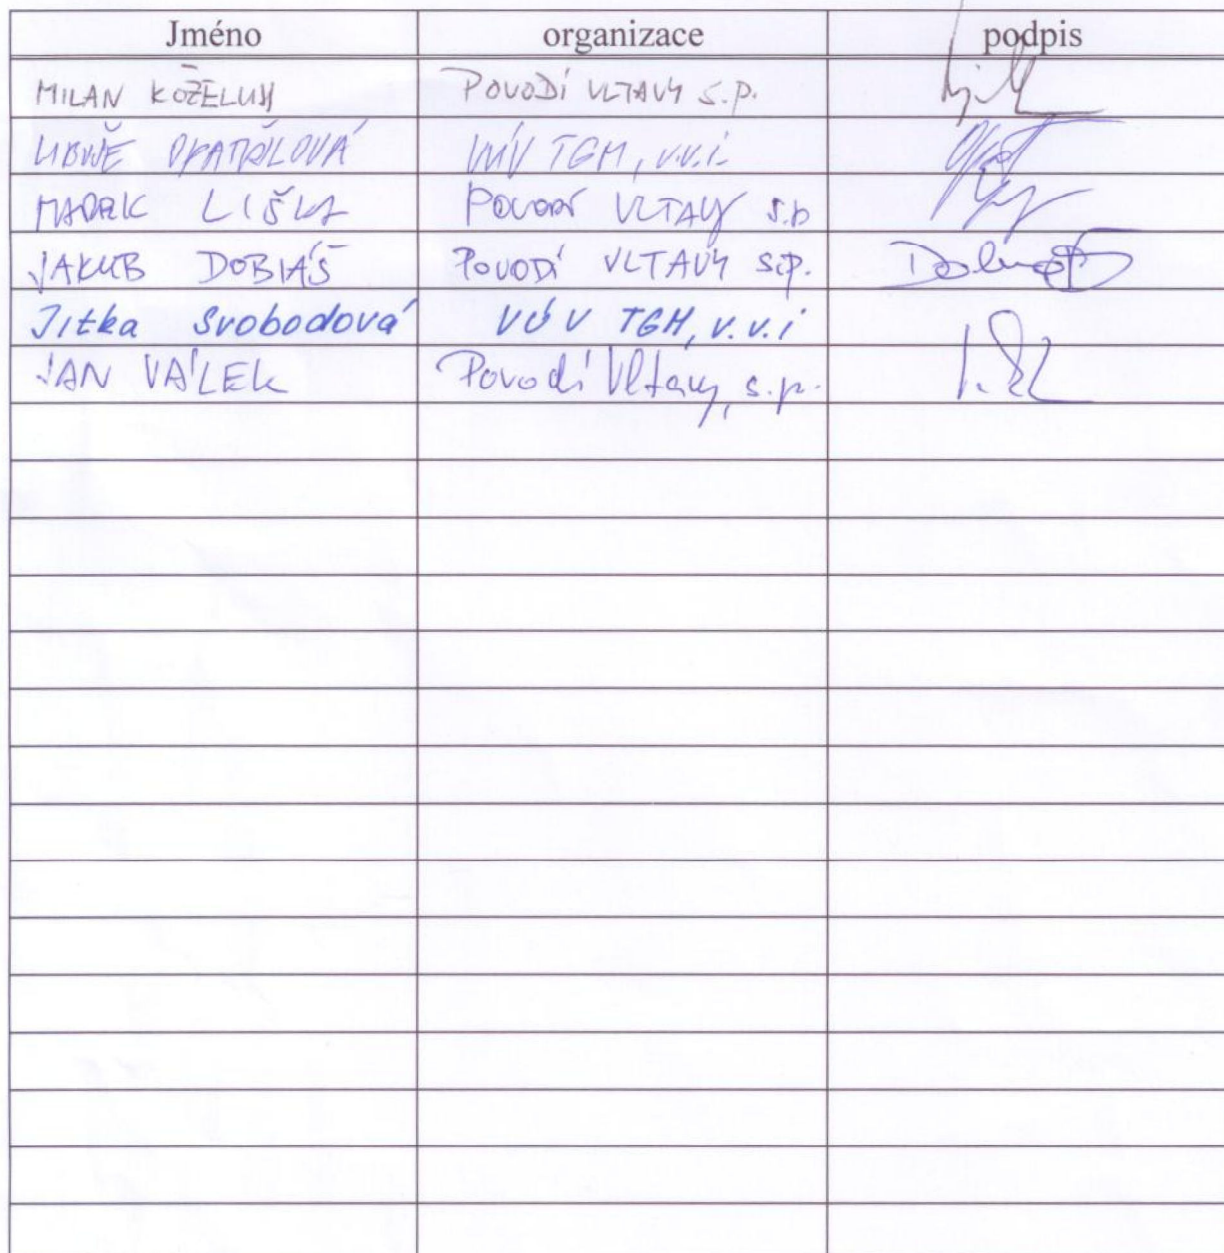 Jméno organizace podpis
MILAN KOŽELUH POVODÍ VLTAVY s.p.
LIBUŠE OPATŘILOVÁ VÚV TGM, v.v.i.
MAREK LIŠKA POVODÍ VLTAVY s.p.
JAKUB DOBIÁŠ POVODÍ VLTAVY s.p.
Jitka Svobodová VÚV TGM, v.v.i
JAN VÁLEK Povodí Vltavy, s.p.